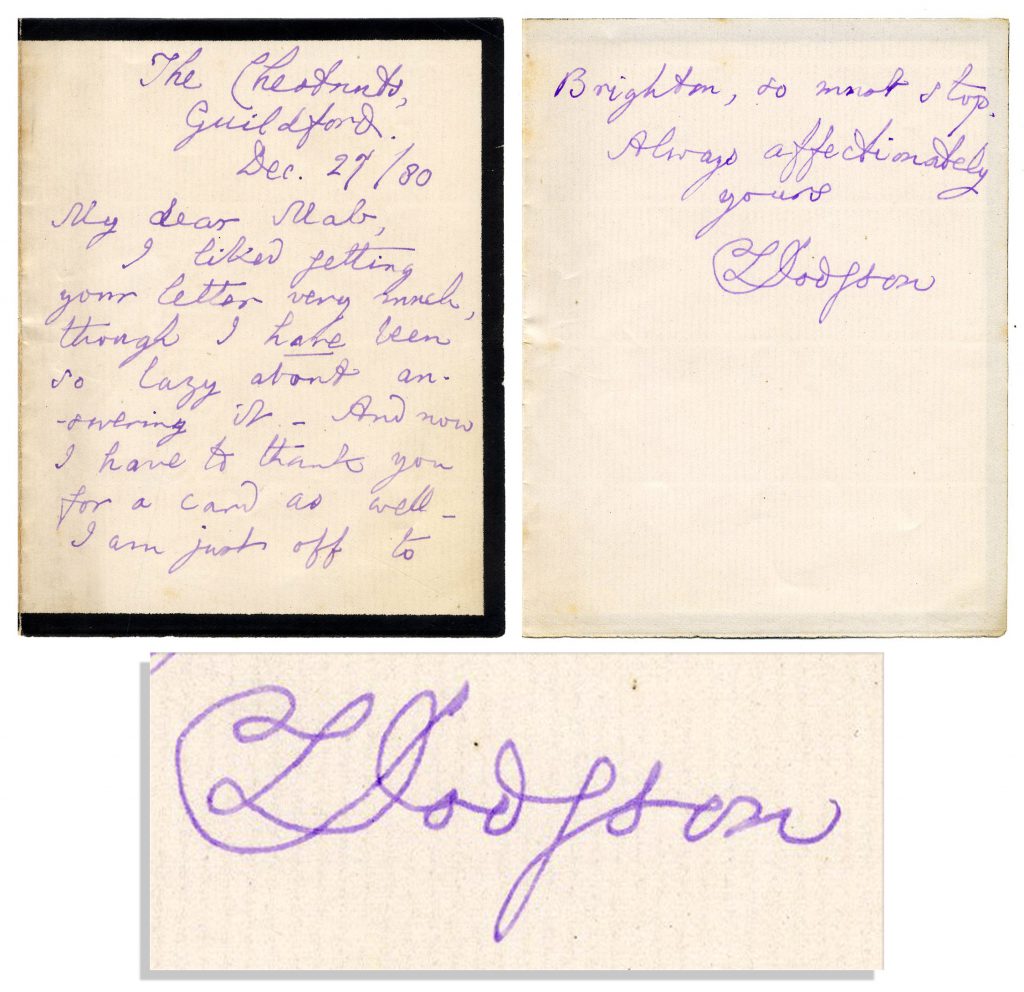 The Chestnuts,
Guildford.
Dec. 27/80
My dear Mab,
I liked getting
your letter very much,
though I have been
so lazy about an-
-swering it - And now
I have to thank you
for a card as well -
I am just off to
Brighton, so must stop.
Always affectionately
yours
CLDodgson
CLDodgson